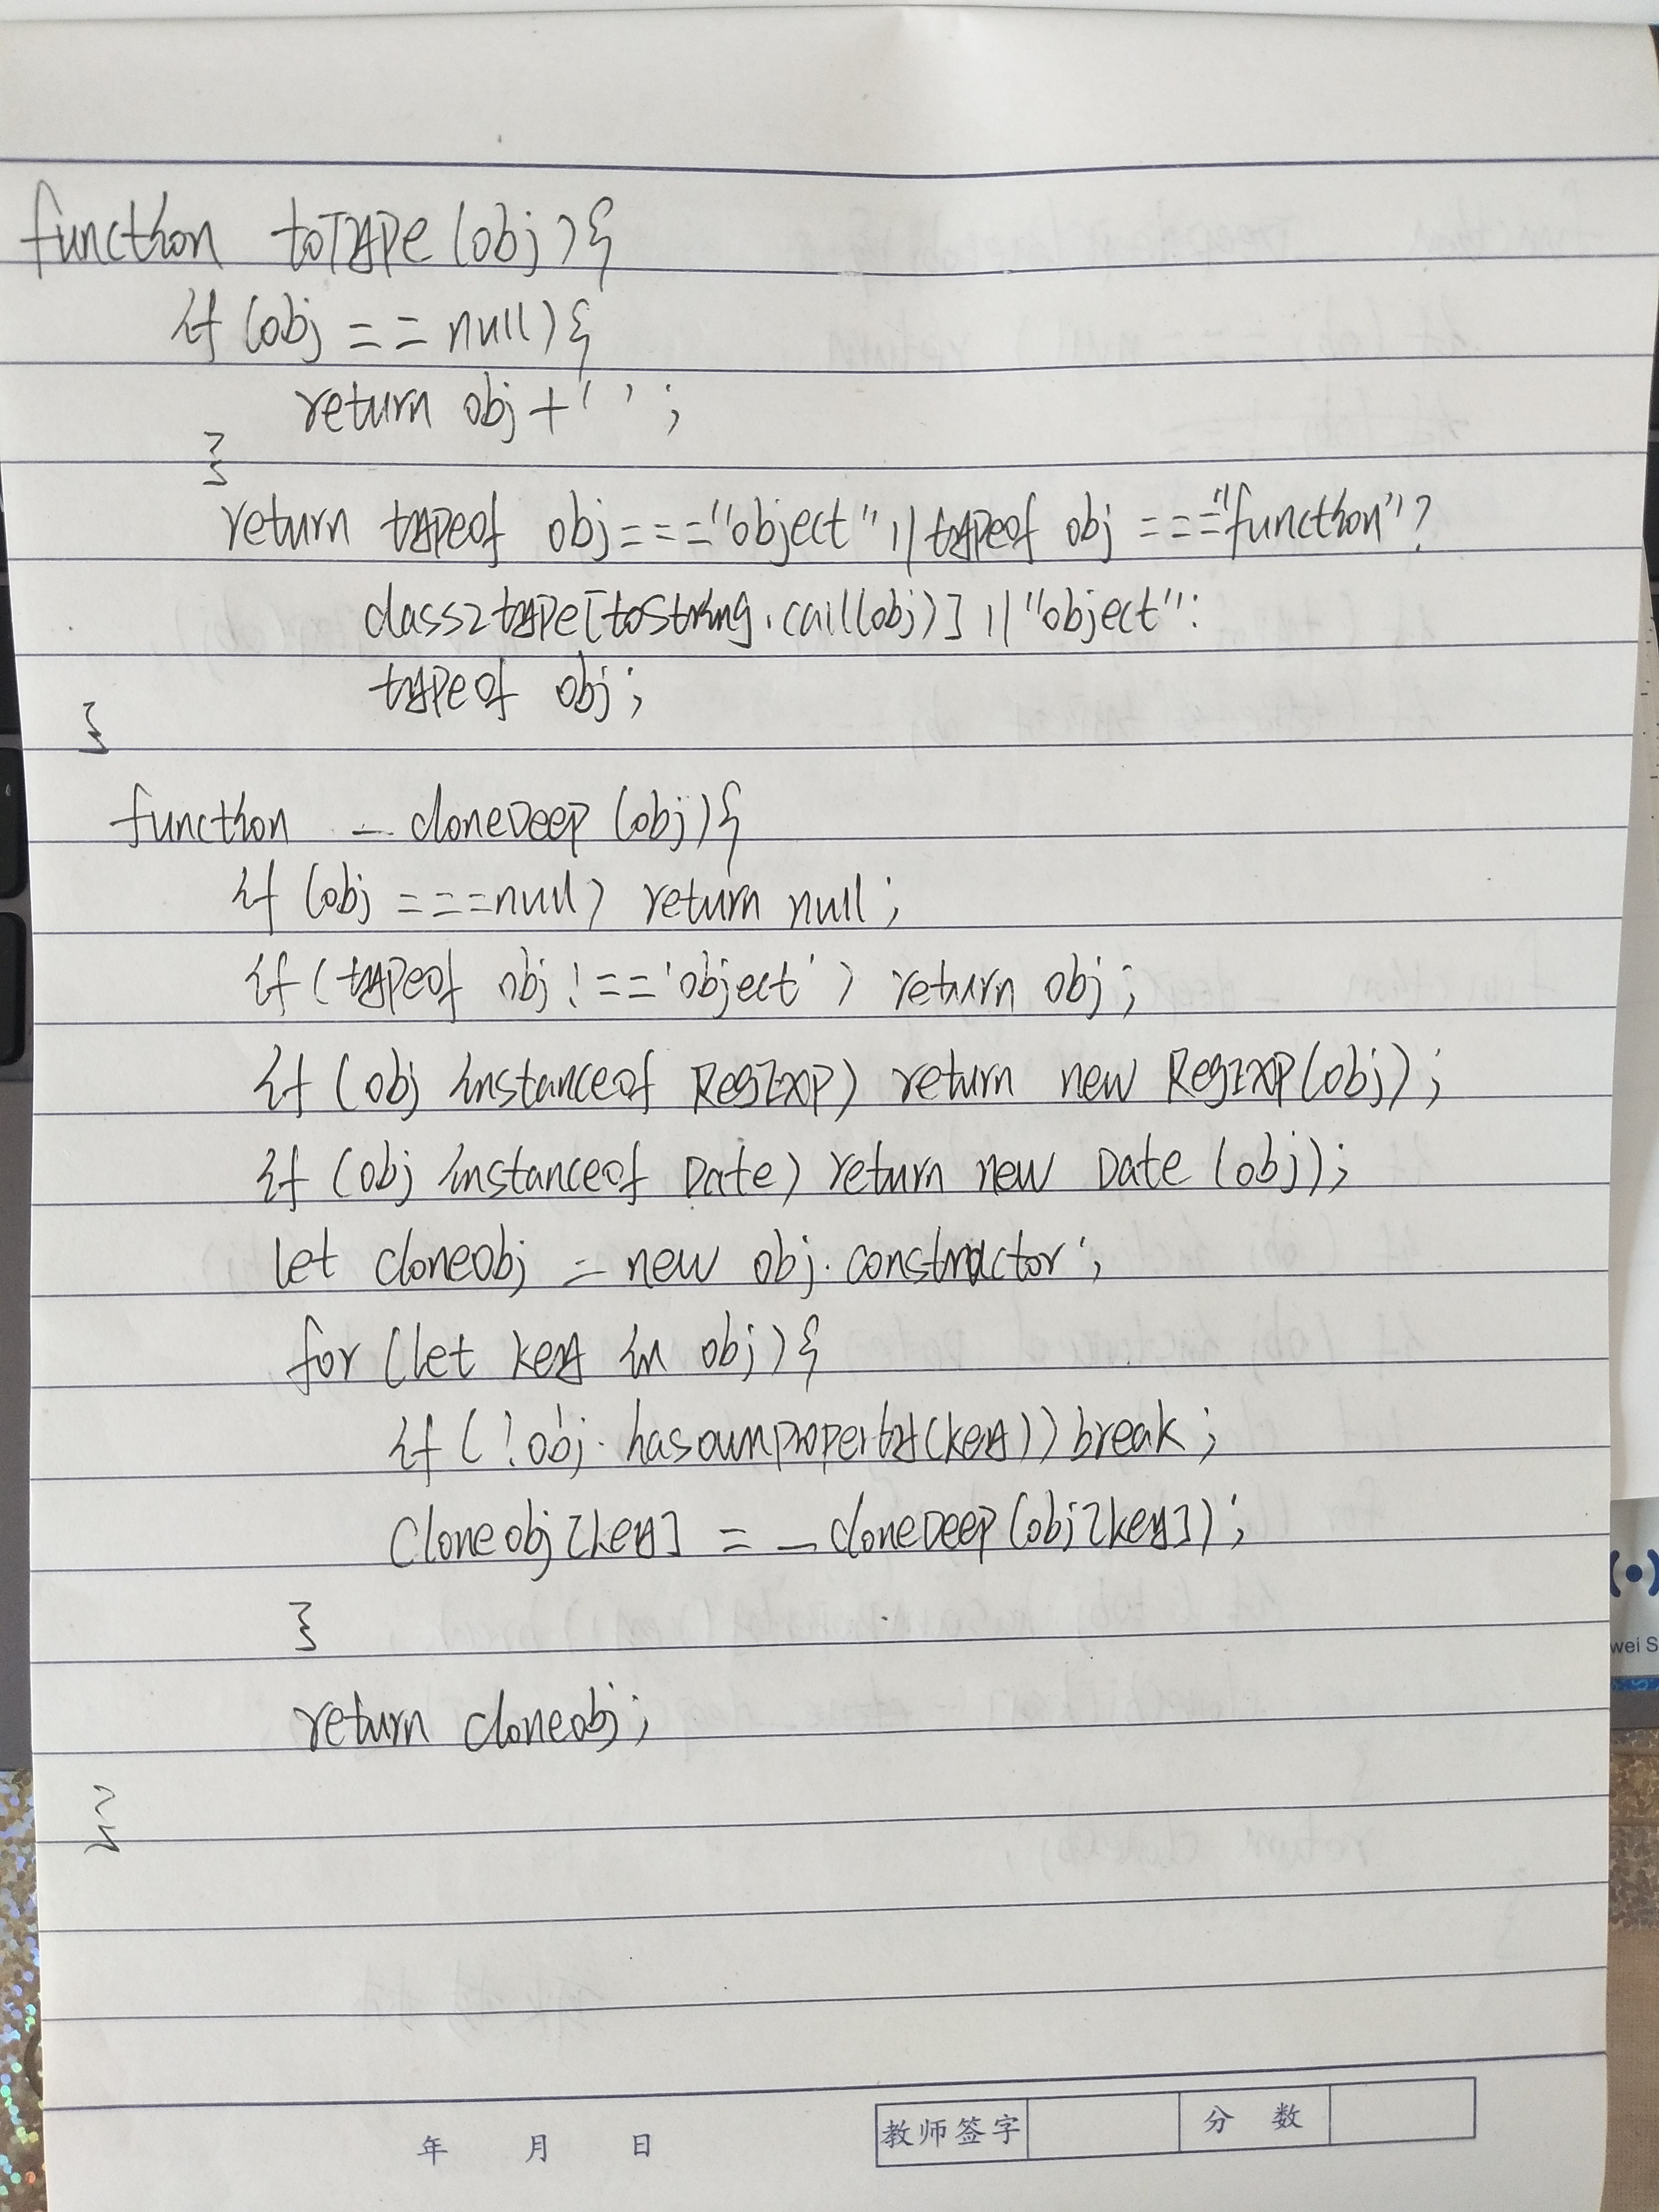 function toType(obj){
if(obj == null){
return obj+'';
}
return typeof obj==="object"||typeof obj==="function"?
class2type[toString.call(obj)]||"object":
typeof obj;
}
function _cloneDeep(obj){
if(obj===null) return null;
if(typeof obj!=='object') return obj;
if(obj instanceof RegExp) return new RegExp(obj);
if(obj instanceof Date) return new Date(obj);
let cloneobj = new obj.constructor;
for(let key in obj){
if(!obj.hasownproperty(key))break;
cloneobj[key] = _cloneDeep(obj[key]);
}
return cloneobj;
}
wei S
年 月 日 教师签字 分 数